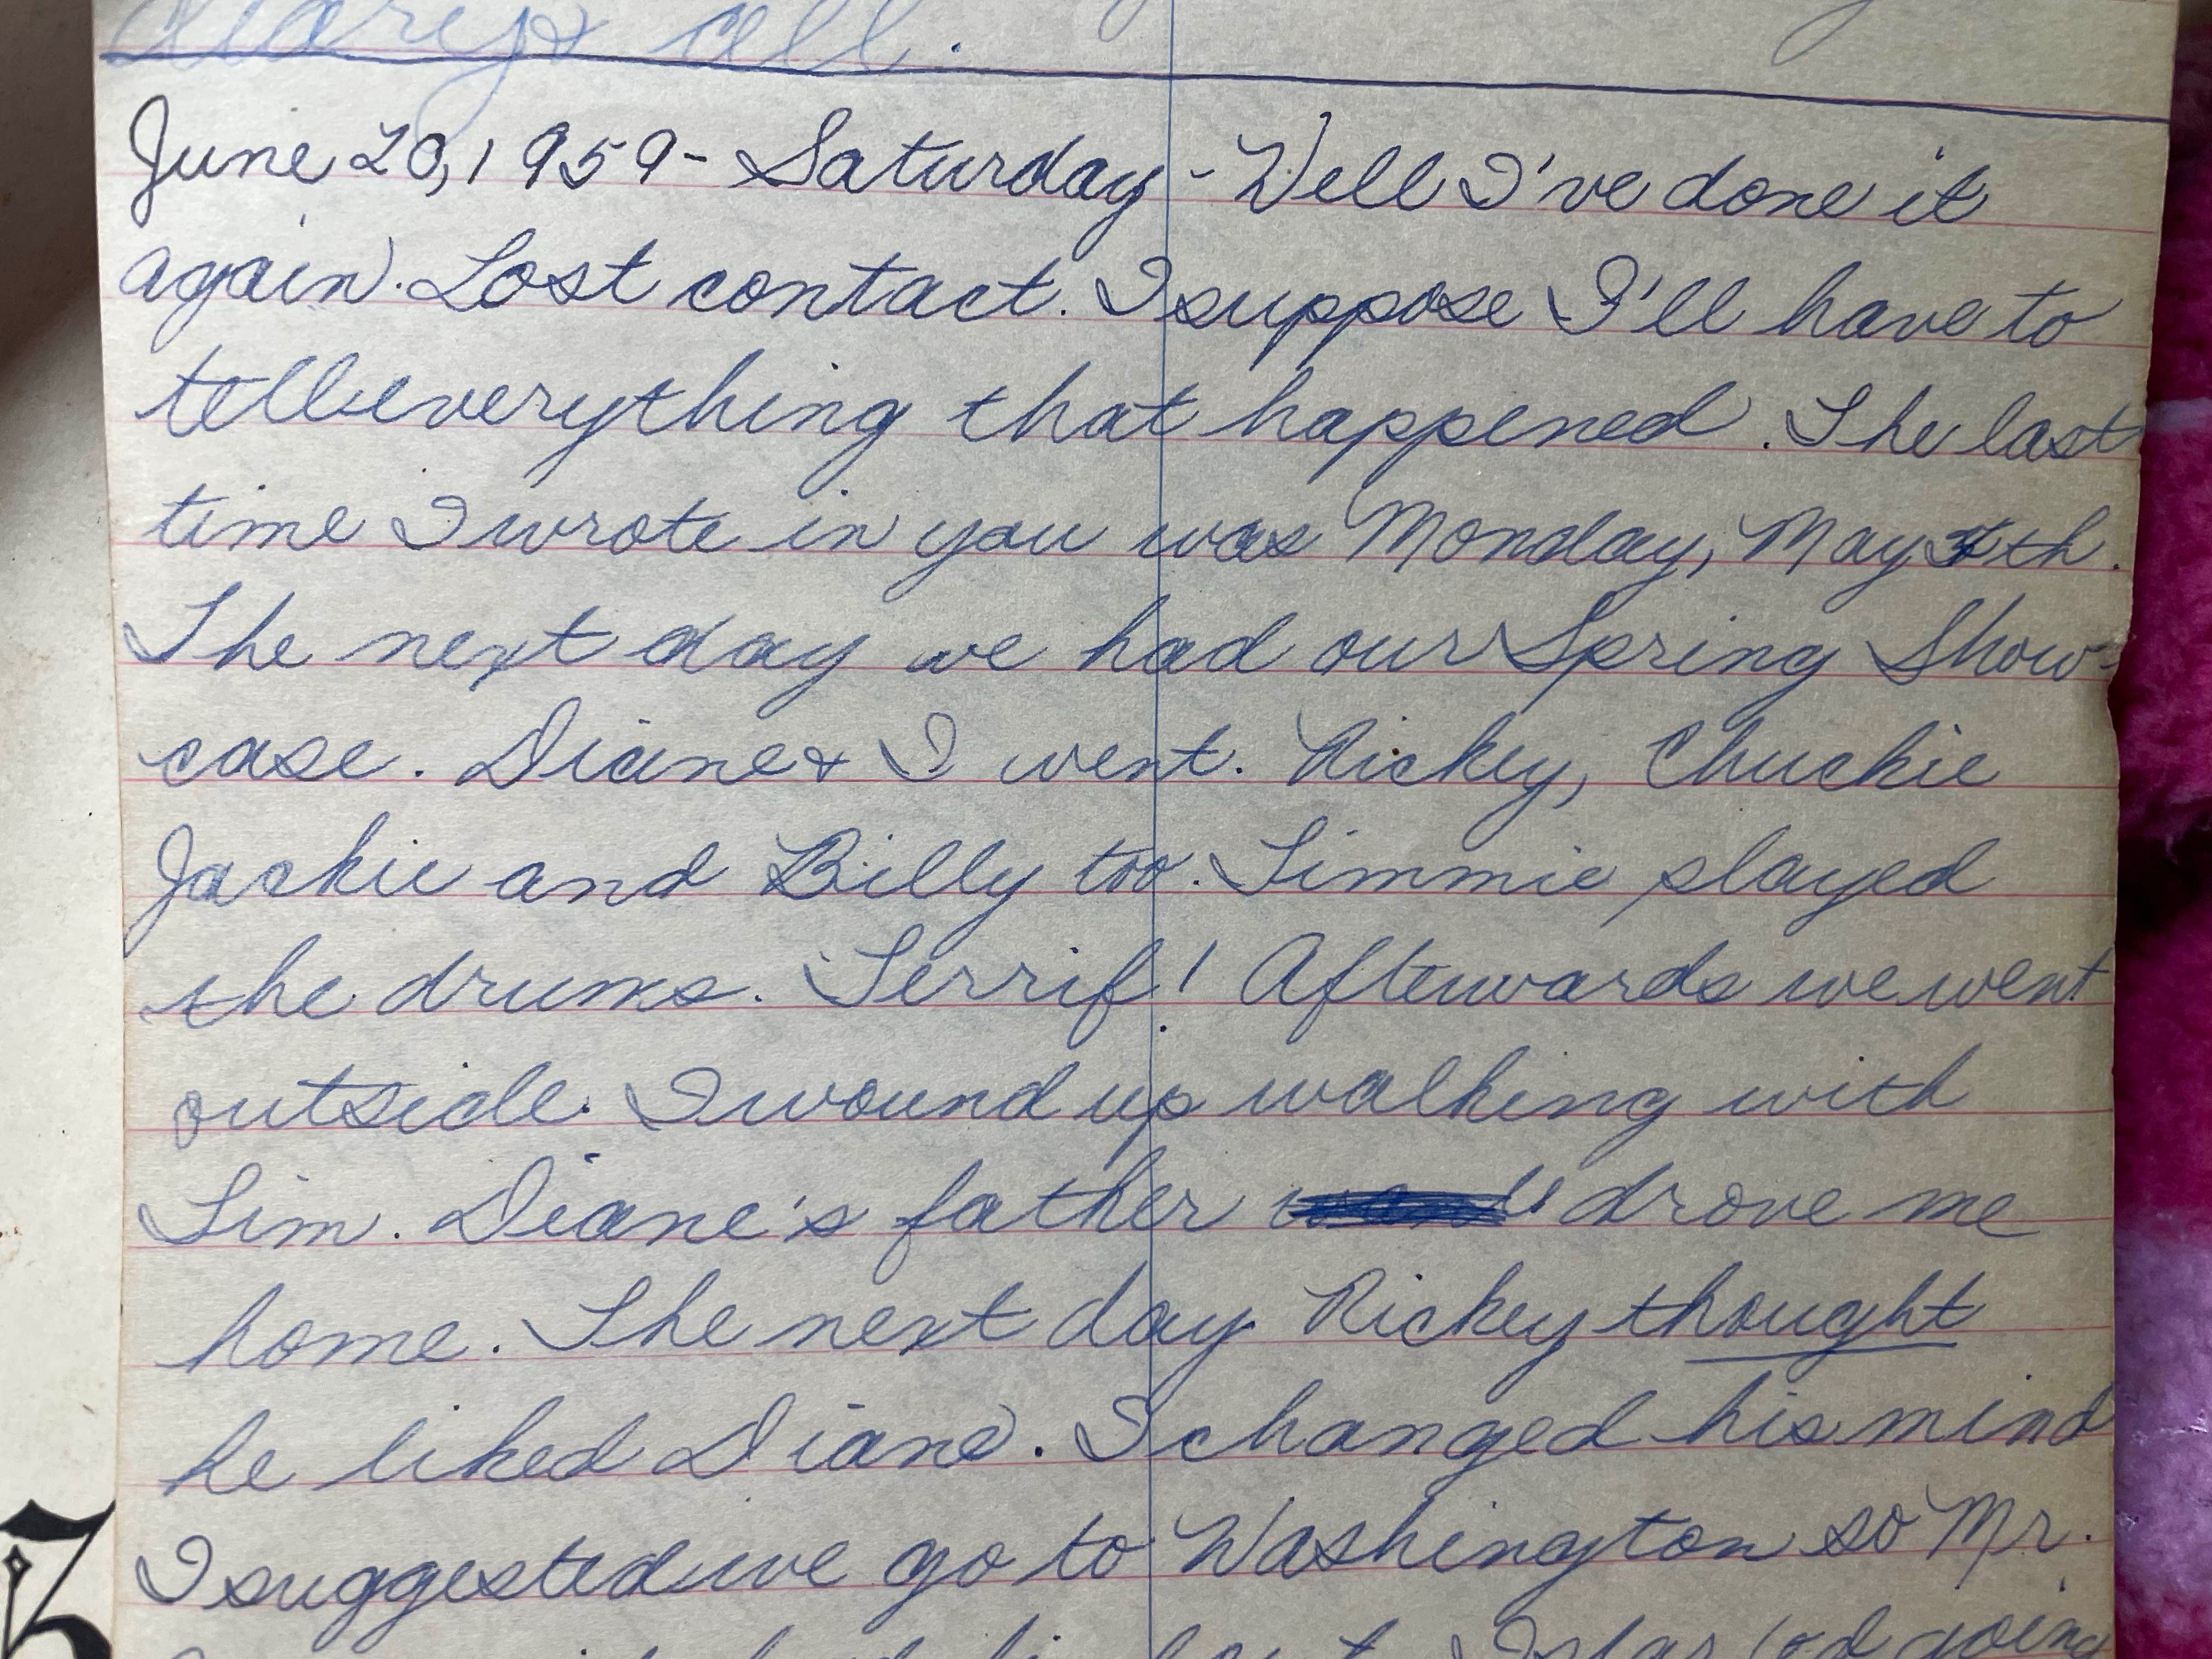 diary & all.
June 20, 1959 - Saturday - Well I've done it
again. Lost contact. I suppose I'll have to
tell everything that happened. The last
time I wrote in you was Monday, May th.
The next day we had our Spring Show-
case. Diane & I went. Rickey, Chuckie
Jackie and Billy too. Timmie played
the drums. Terrif! Afterwards we went
outside. I wound up walking with
Tim. Diane's father drove me
home. The next day Rickey thought
he liked Diane. I changed his mind
I suggested we go to Washington so Mr.
going